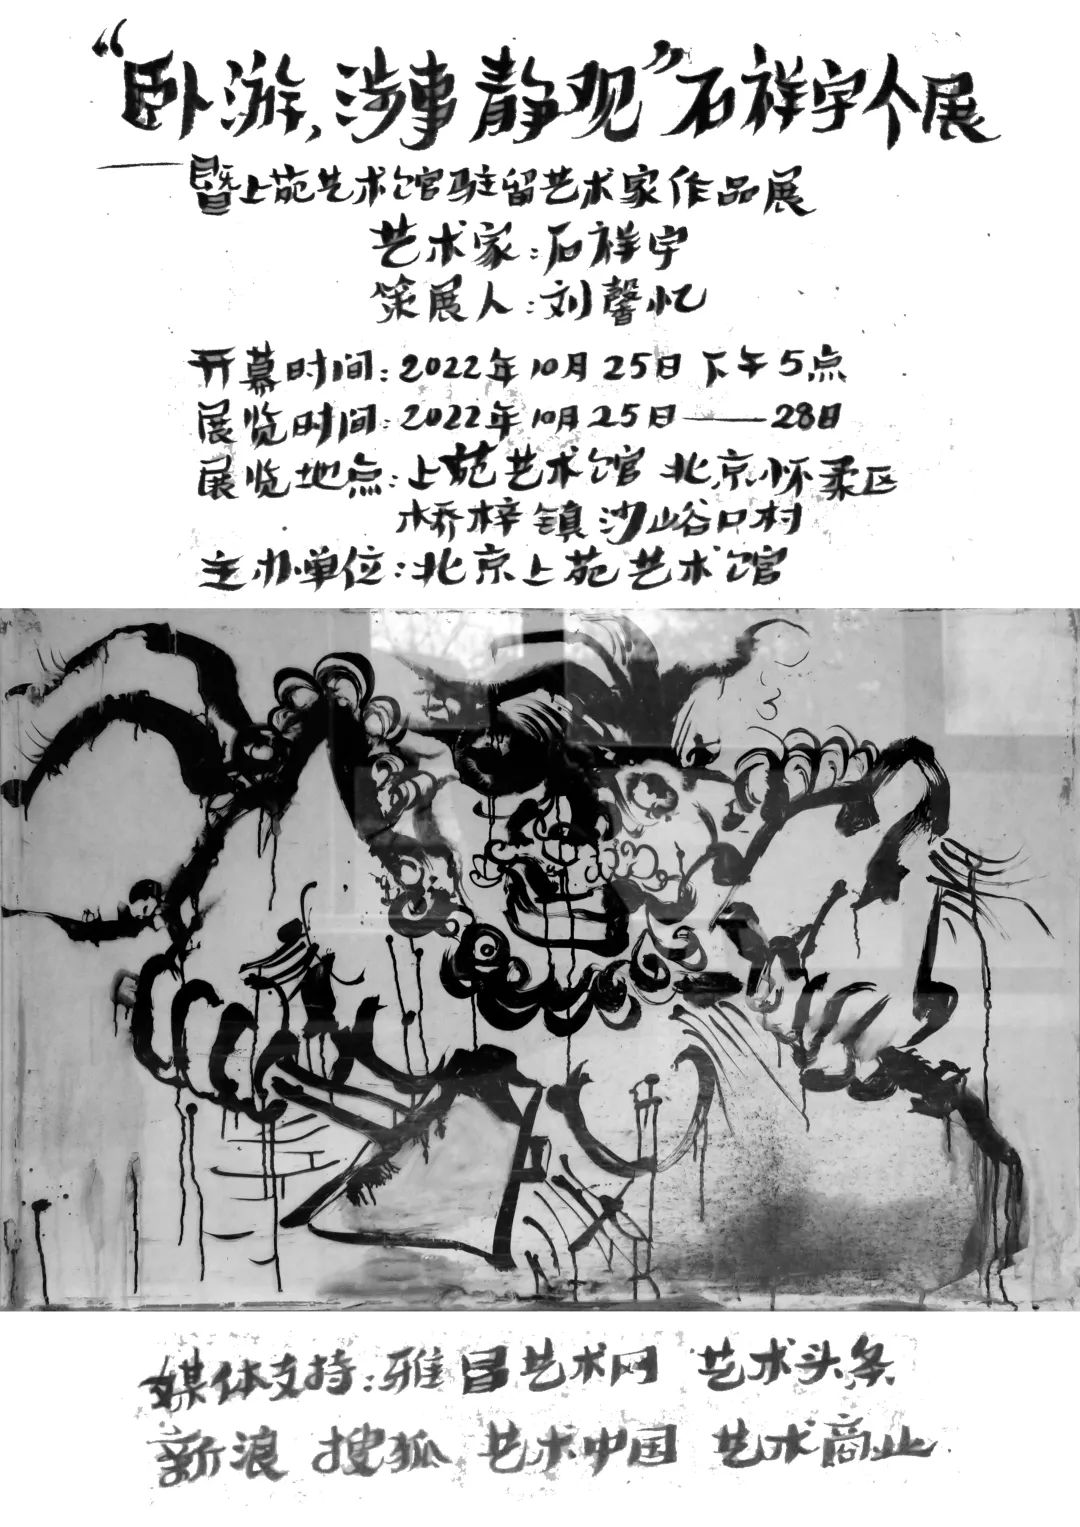 “卧游，涉事静观”石祥宇个展
——暨上苑艺术馆驻留艺术家作品展
艺术家：石祥宇
策展人：刘馨忆
开幕时间：2022年10月25日下午5点
展览时间：2022年10月25日——28日
展览地点：上苑艺术馆 北京怀柔区
桥梓镇沙峪口村
主办单位：北京上苑艺术馆
媒体支持：雅昌艺术网 艺术头条
新浪 搜狐 艺术中国 艺术商业